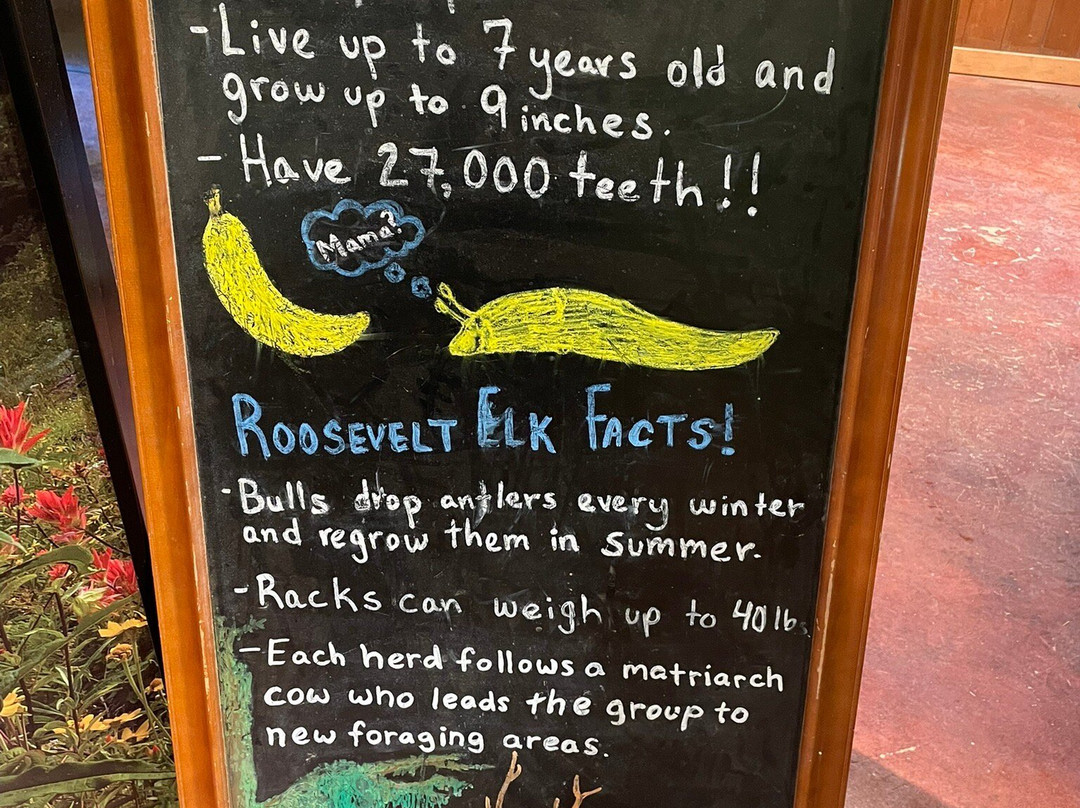 -Live up to 7 years old and
grow up to 9 inches.
- Have 27,000 teeth!!
Mama?
ROOSEVELT ELK FACTS!
-Bulls drop antlers every winter
and regrow them in summer.
-Racks can weigh up to 40 lbs
-Each herd follows a matriarch
cow who leads the group to
new foraging areas.